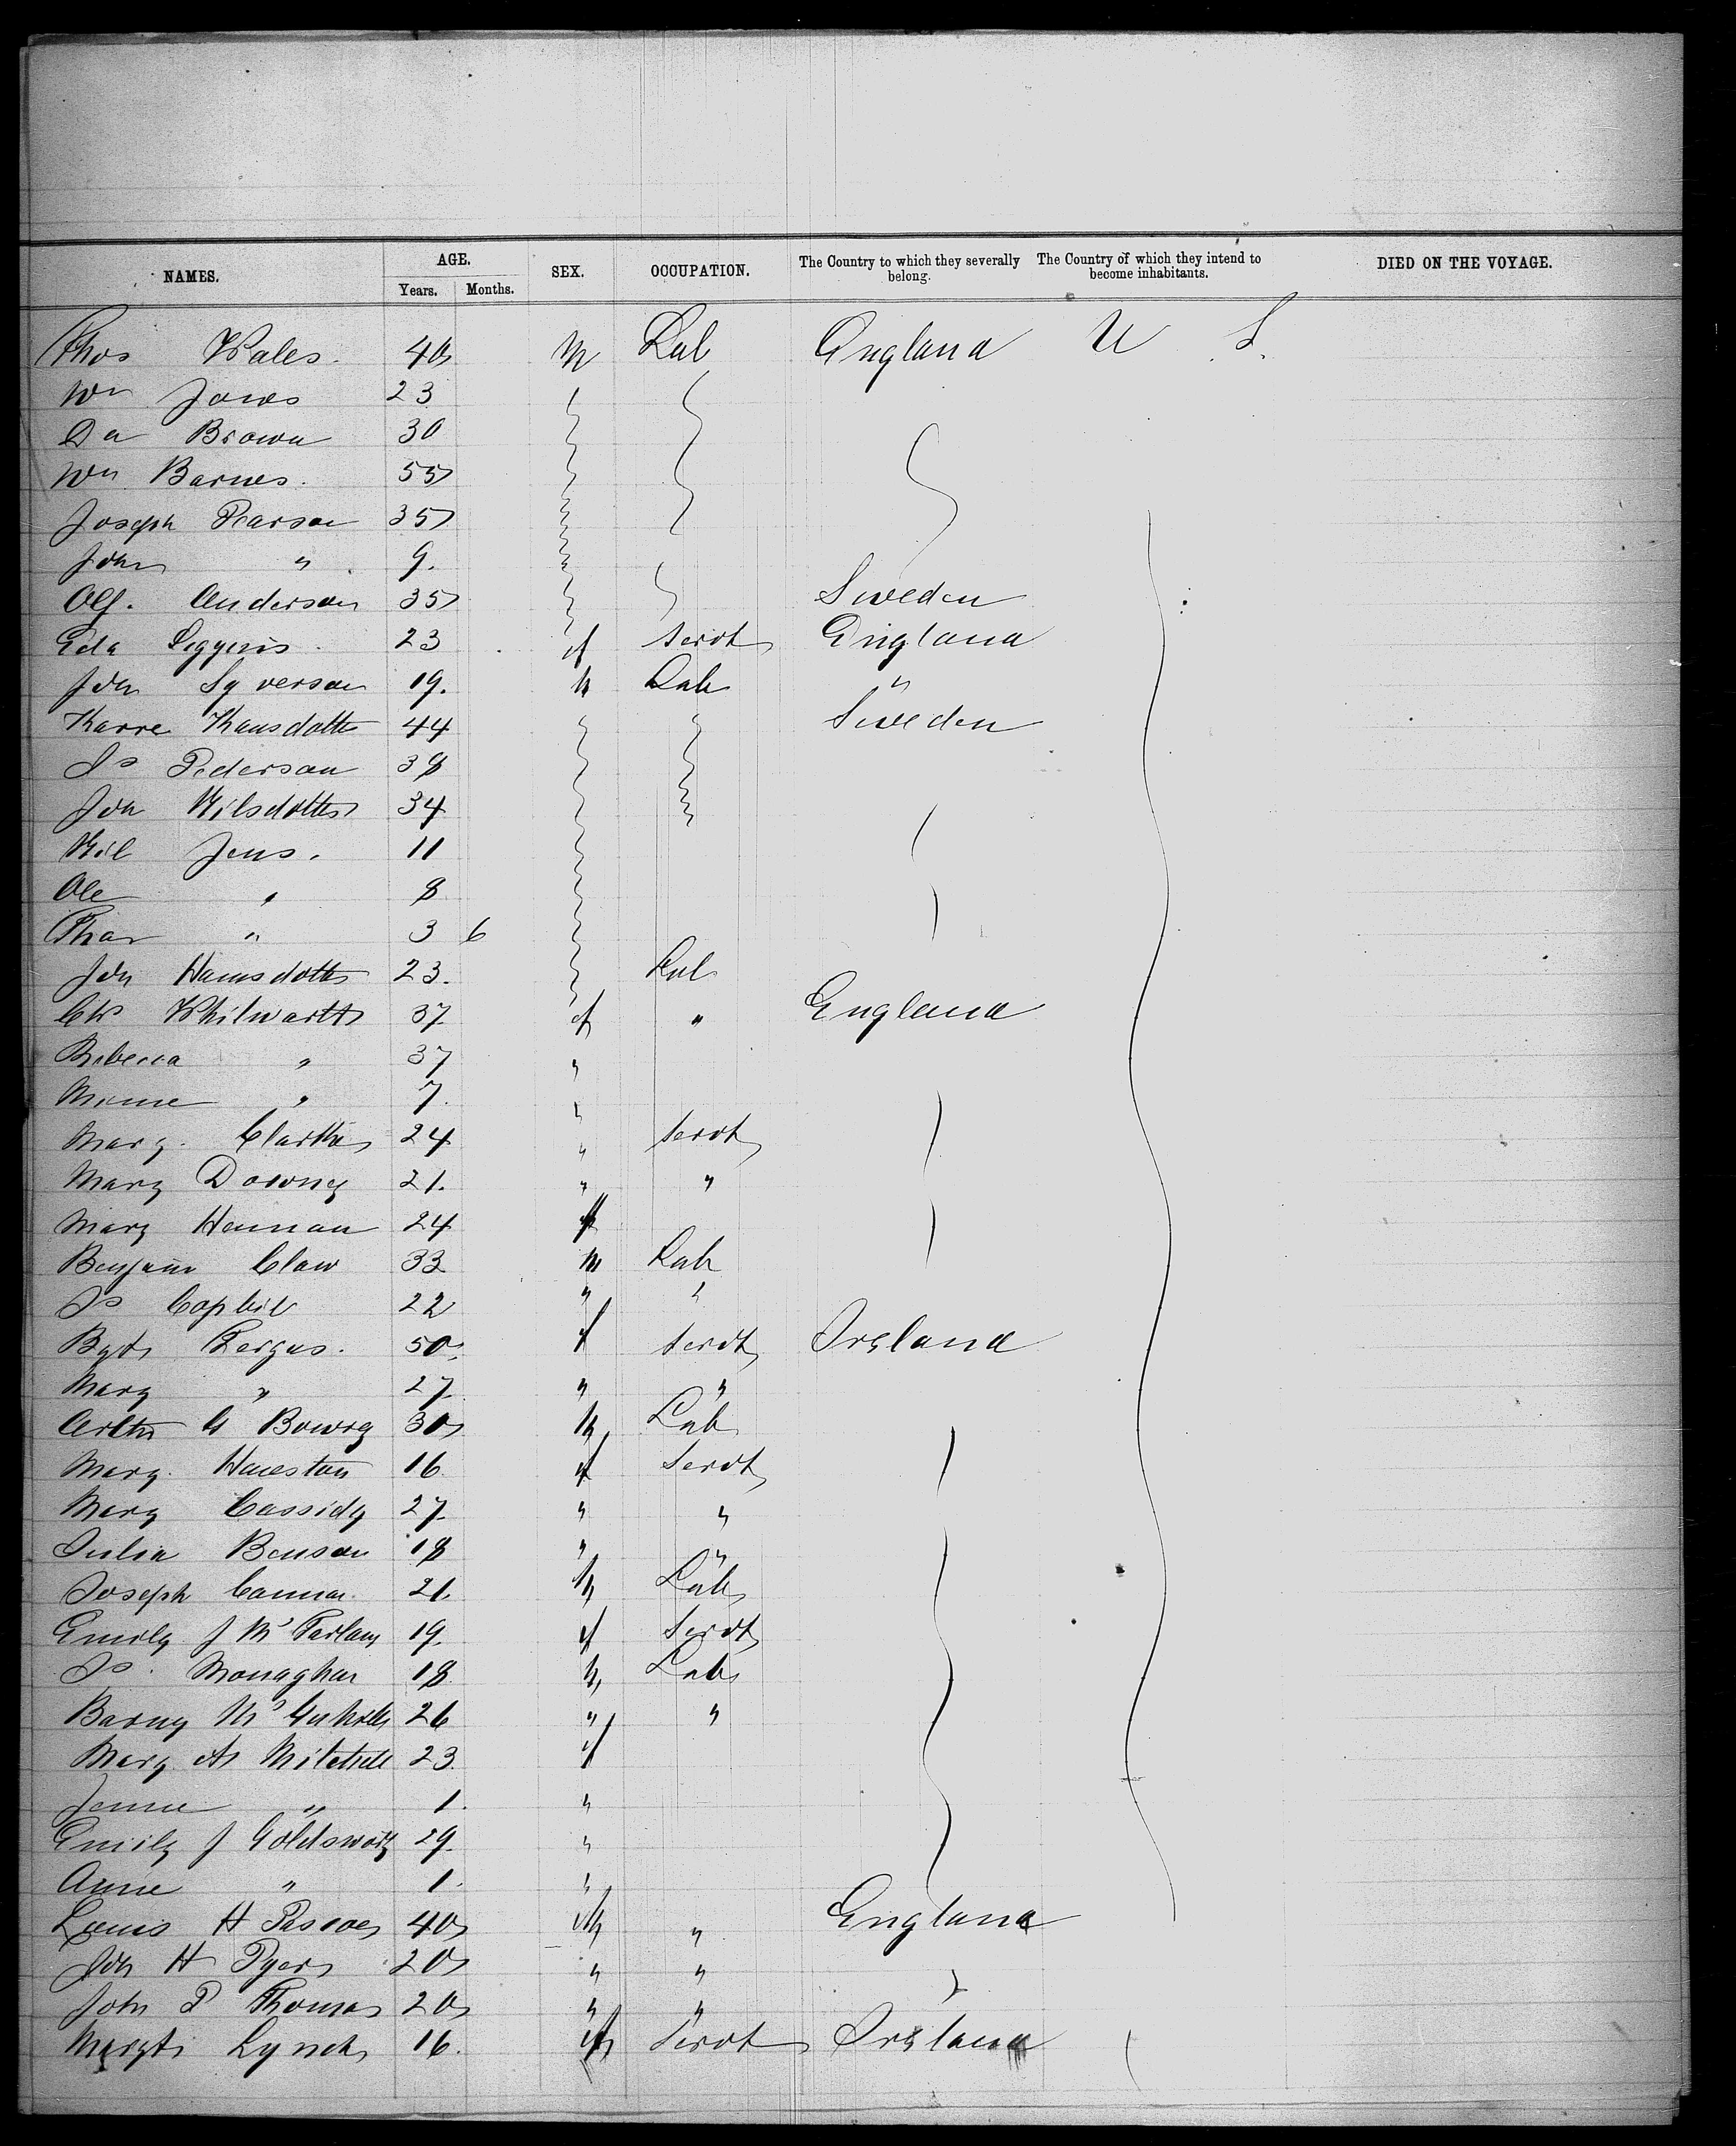 NAMES. AGE. Years. Months. SEX. OCCUPATION. The Country to which they severally belong. The Country of which they intend to become inhabitants. DIED ON THE VOYAGE.
Thos Wales. 40 M Lab England U S.
Wm Jones 23
Da Brown 30
Wm Barnes. 55
Joseph Pearson 35
John " 9.
Alf. Anderson 35 Sweden
Eda 23 f Servt England
Joh 19. M Lab "
Karre Hansdotte 44 Sweden
Js Pederson 38
Joh Nilsdotte 34
Nil Jens. 11
Ole " 8
Thor " 3 6
Joh Hansdotte 23. Lab
Chs Whitworth 37 f " England
Rebecca " 37 "
Minnie " 7. "
Mary Clarke 24 " Servt
Mary Downey 21. " "
Mary Hennan 24 f
Benjamin Claw 33 M Lab
Js 22 " "
Bgt Fergus. 50. f Servt Ireland
Mary " 27. " "
Arthr G Bowrey 30 M Lab
Mary. 16 f Servt
Mary Cassidy 27. " "
Julia Benson 18 " "
Joseph Cannon. 21. M Lab
Emily J McFarlan 19. f Servt
Js. Monaghan 18. M Lab
Barny 26 " "
Mary A Mitchell 23. f
Jennie " 1. "
Emily J Goldsworthy 29. "
Annie " 1. "
Louis H Pascoe 40 M " England
Joh H Pyers 20 " "
John P Thomas 20 " "
Margt Lynch 16. f Servt Ireland